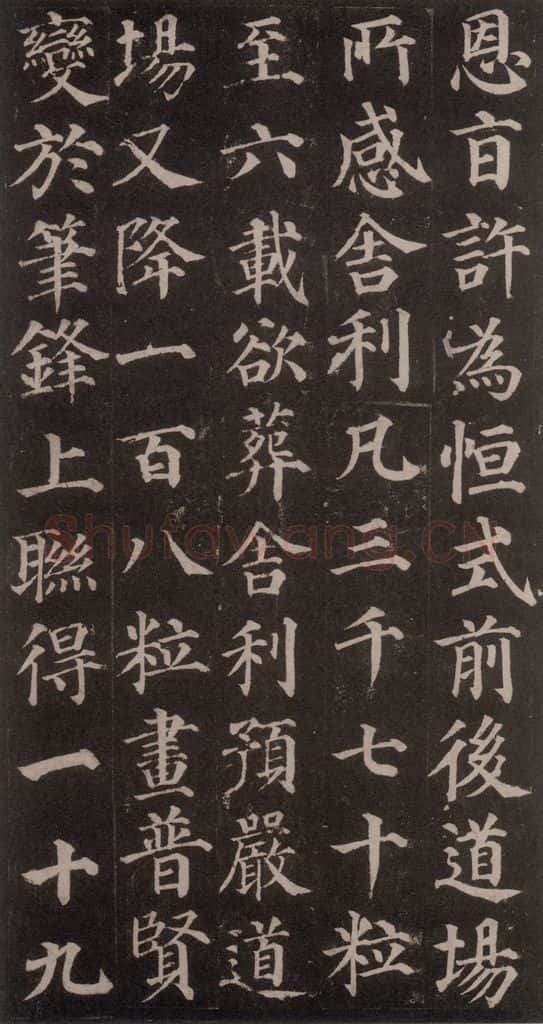 恩旨許為恒式前後道場
所感舍利凡三千七十粒
至六載欲葬舍利預嚴道
場又降一百八粒畫普賢
變於筆鋒上聯得一十九
Shufawang.CN